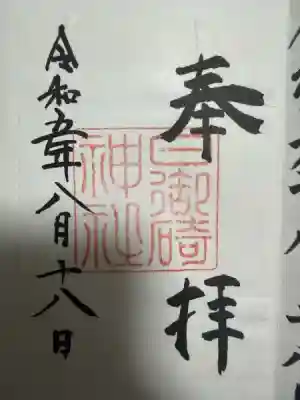 奉拝
日御碕神社
令和五年八月十八日